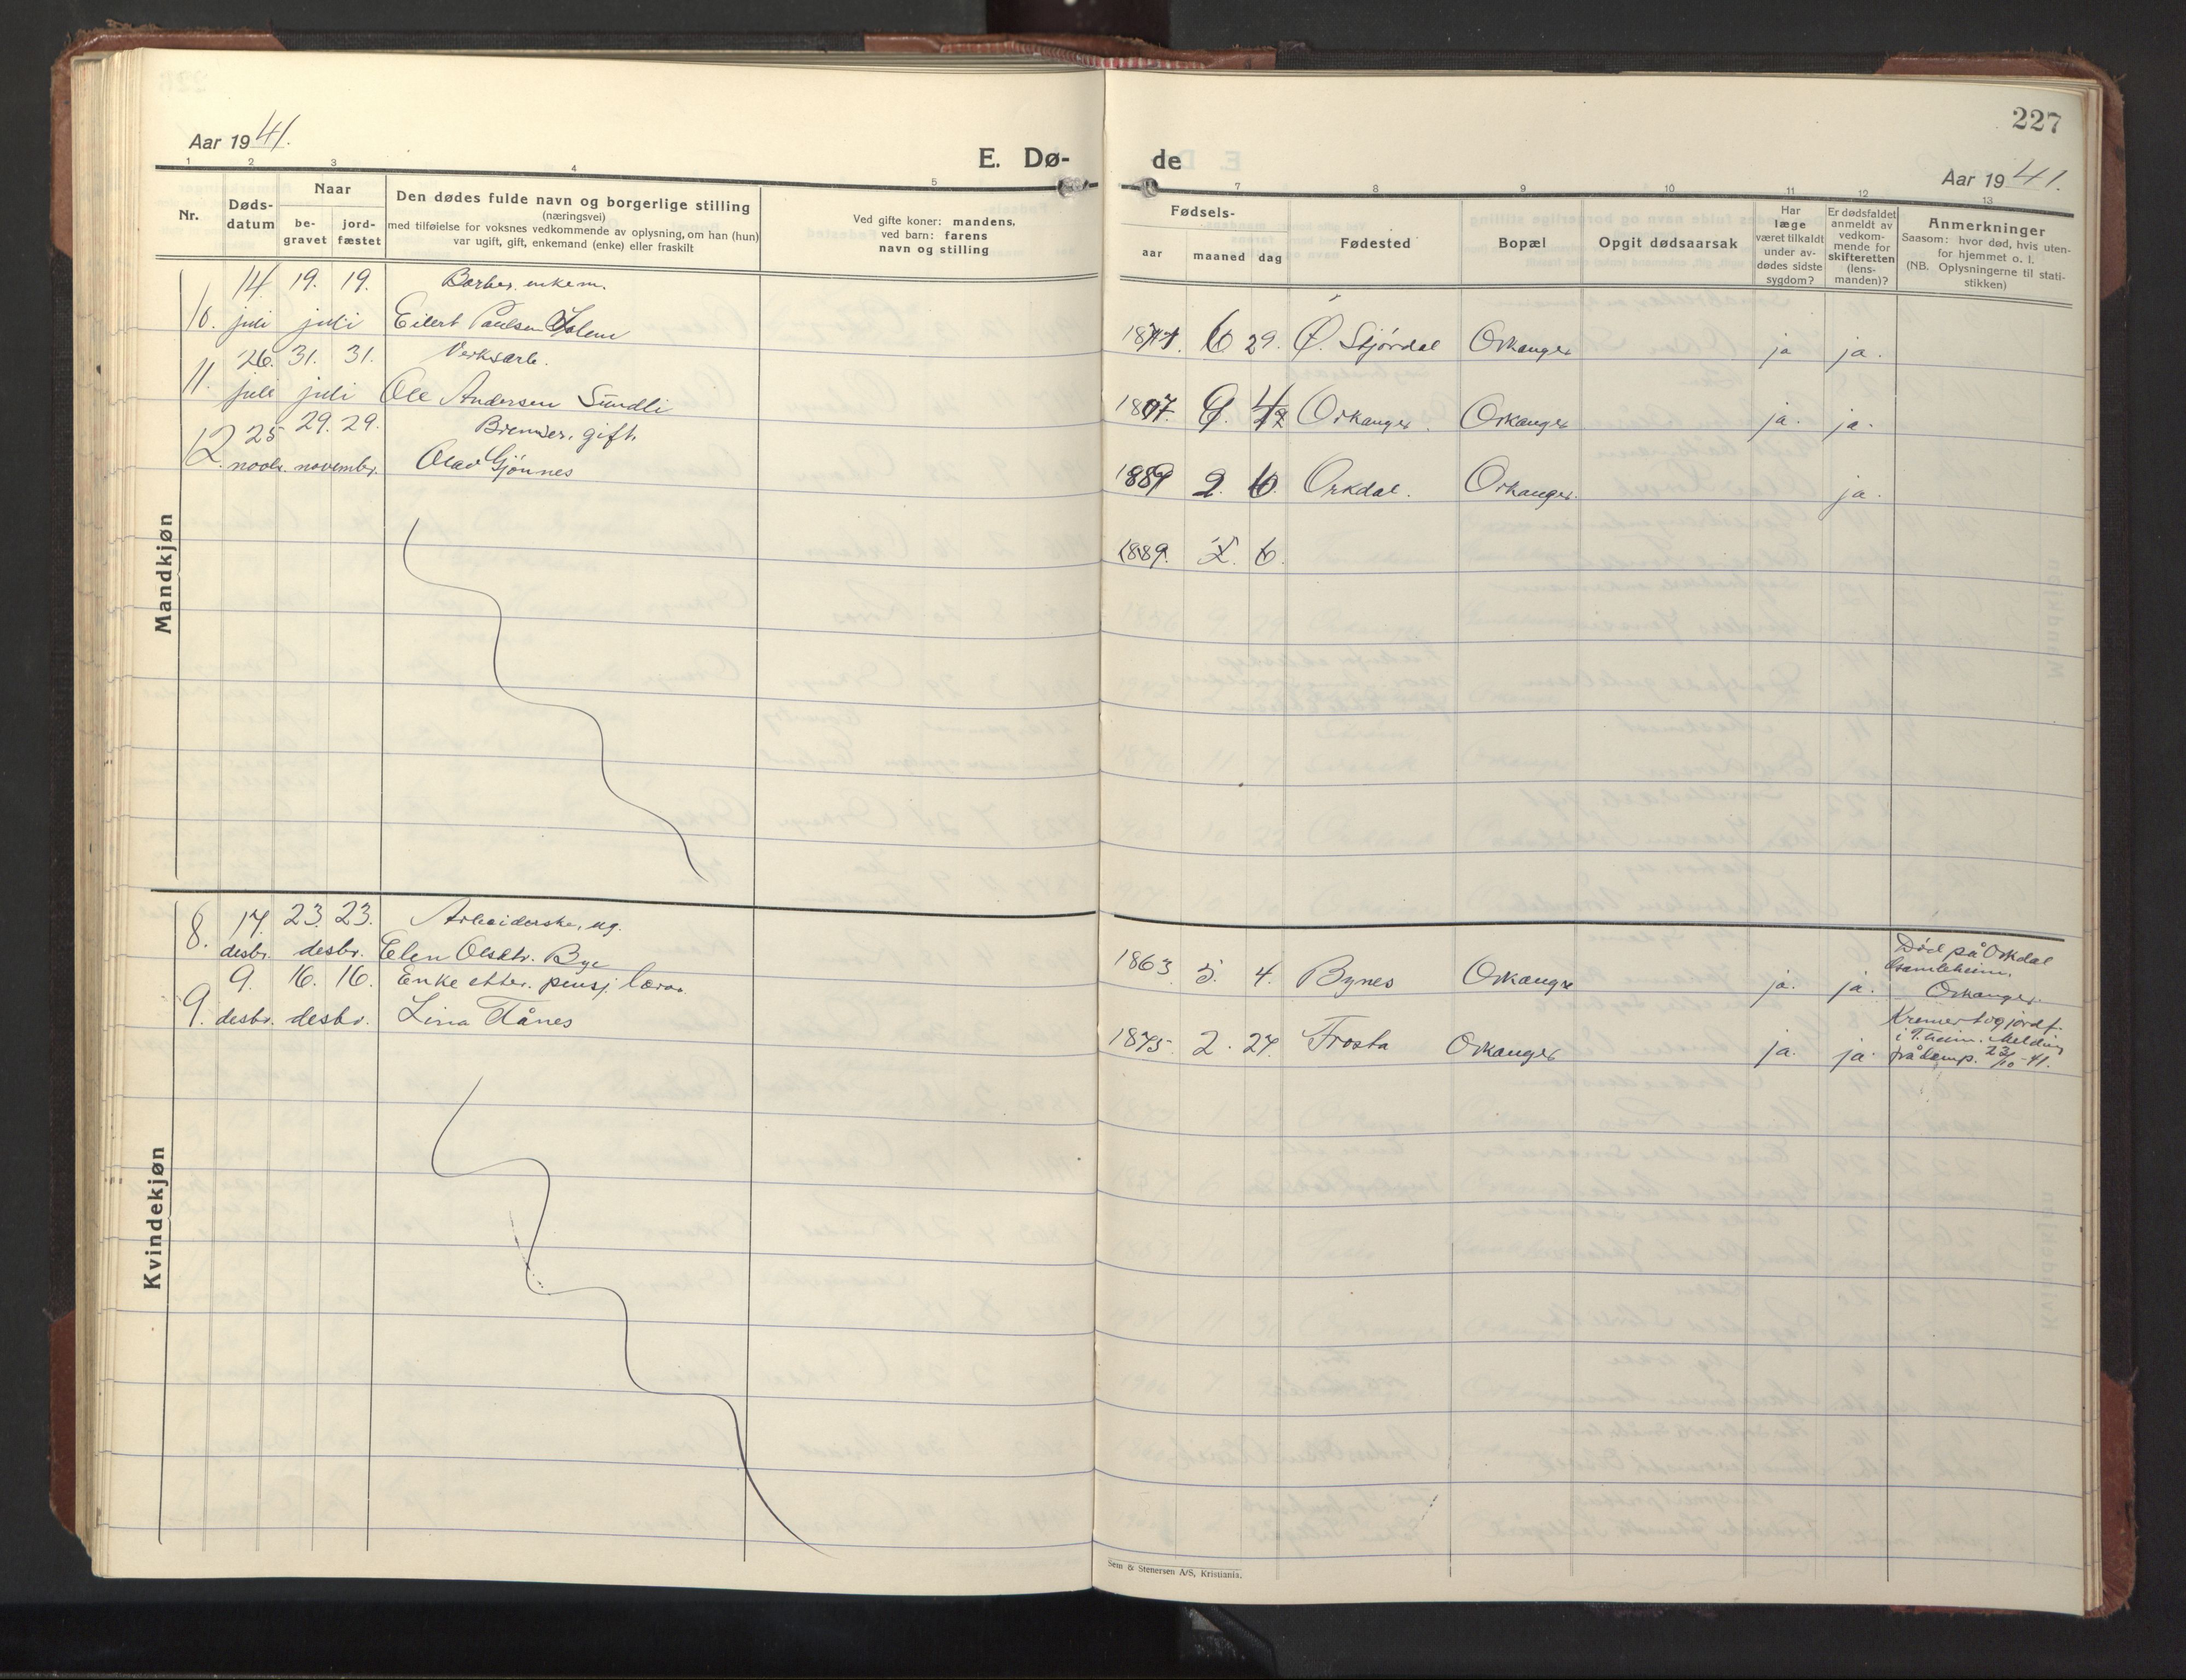 227
Aar 1941.
E. Dø-
de
Aar 1941.
1 2 3 4 5
7 8 9 10 11 12 13
Nr.
Døds-
datum
Naar
be-
gravet
jord-
fæstet
Den dødes fulde navn og borgerlige stilling
(næringsvei)
med tilføielse for voksnes vedkommende av oplysning, om han (hun)
var ugift, gift, enkemand (enke) eller fraskilt
Ved gifte koner: mandens,
ved barn: farens
navn og stilling
Fødsels-
aar maaned dag
Fødested
Bopæl
Opgit dødsaarsak
Har
læge
været tilkaldt
under av-
dødes sidste
sygdom?
Er dødsfaldet
anmeldt av
vedkom-
mende for
skifteretten
(lens-
manden)?
Anmerkninger
Saasom: hvor død, hvis uten-
for hjemmet o. l.
(NB. Oplysningerne til stati-
stikken)
Mandkjøn
14. 19. 19. Barber. enkem.
10. juli juli Eilert Paulsen
6 29. Ø. Stjørdal Orkanger ja ja.
26. 31. 31. Verksarb.
11. juli juli Ole Andersen Sundli
Orkanger. Orkanger ja. ja.
25 29. 29. gift.
12. novbr. november. Olav Gjønnes
1889 2. 6. Orkdal. Orkanger. ja.
1889. 6.
Kvindekjøn
17. 23. 23. Arbeiderske, ug.
8. desbr. desbr. Elen Olsdtr. Bye
1863 5. 4. Bynes Orkanger ja. ja.
Død på Orkdal
Gamleheim,
Orkanger.
9. 16. 16. Enke etter. pensj. lærer
9. desbr. desbr. Lina Tånes
1875. 2. 27. Frosta Orkanger ja. ja.
Kremert og jordf.
i T.heim. Melding
frå
Sem & Stenersen A/S, Kristiania.